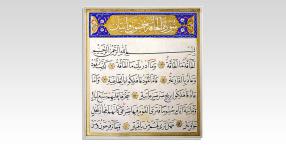 سورة الحاقة خمسون وايتان
بسم الله الرحمن الرحيم
الحاقة ما الحاقة وما ادريك ما الحاقة
وعاد بالقارعة فاما ثمود فاهلكوا بالطاغية واما
عاد فاهلكوا بريح صرصر عاتية سخرها عليهم سبع ليال
وثمانية ايام حسوما فترى القوم فيها صرعى كانهم اعجاز نخل
خاوية فهل ترى لهم من باقية وجاء فرعون ومن